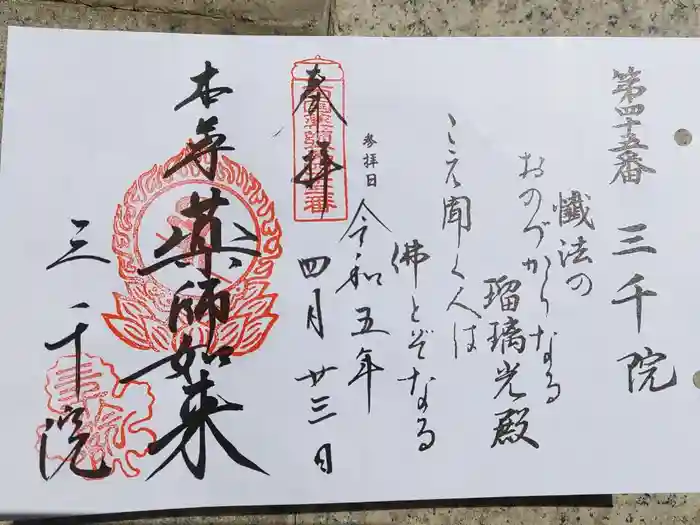 第四十五番
三千院
懺法の
瑠璃光殿
おのづからなる
こえ聞く人は
佛とぞなる
奉拝
参拝日
令和五年
四月廿三日
本尊
薬師如来
三千院